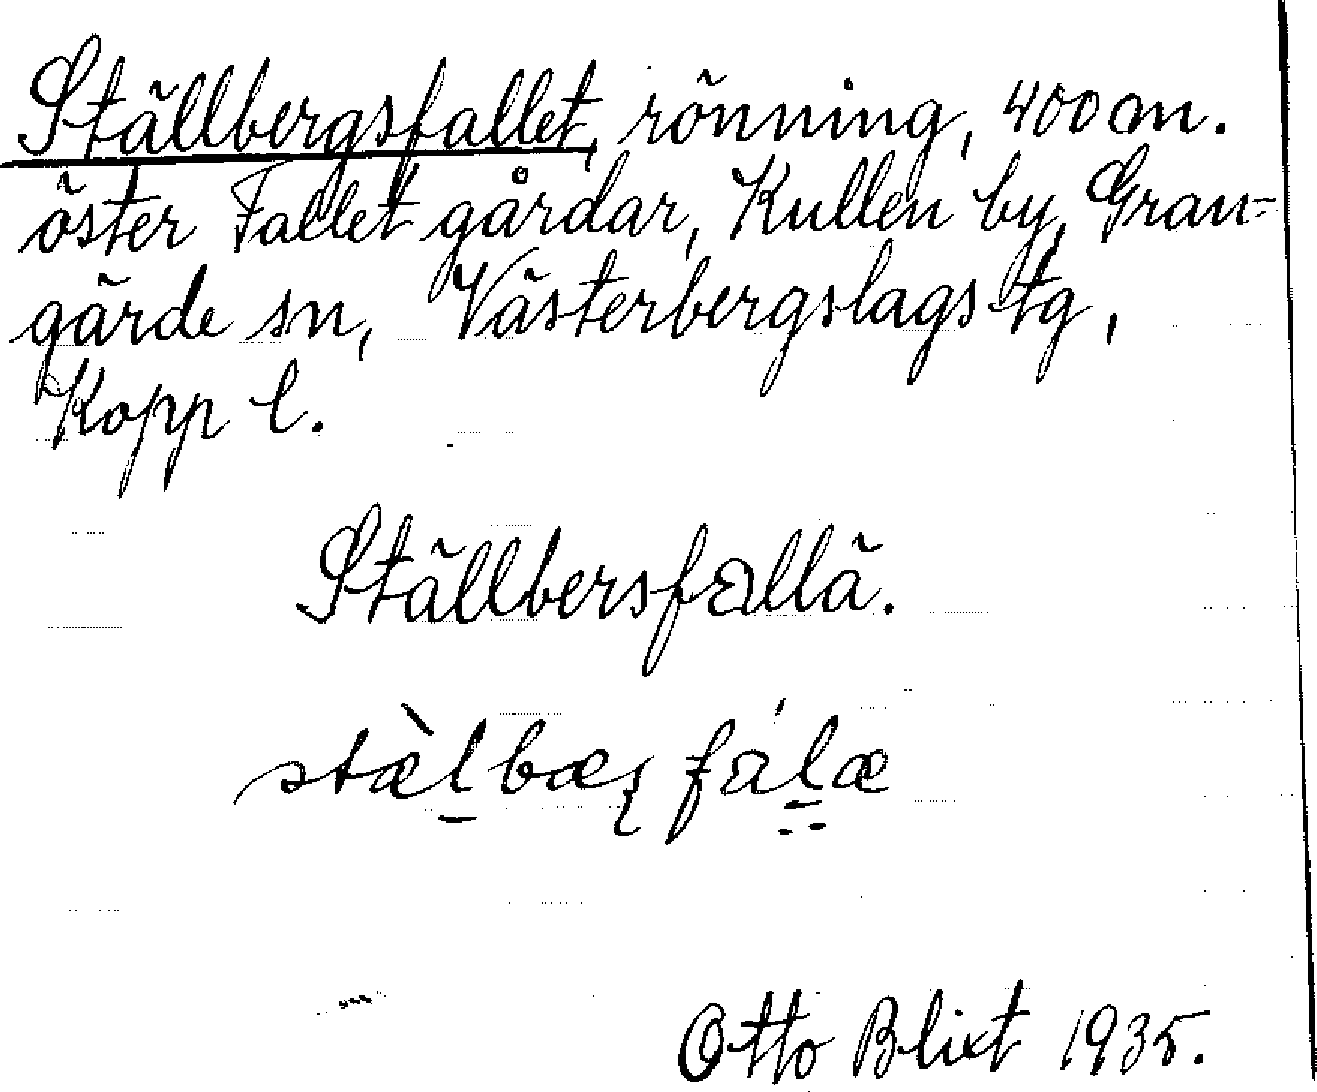 Ställbergsfallet, rönning, 400 m.
öster Fallet gårdar, Kullen by, Gran-
gärde sn, Västerbergslags tg,
Kopp l.
Ställbersfallä.
stæ̀l̠bæꞬfál̠æ
Otto Blixt 1935.